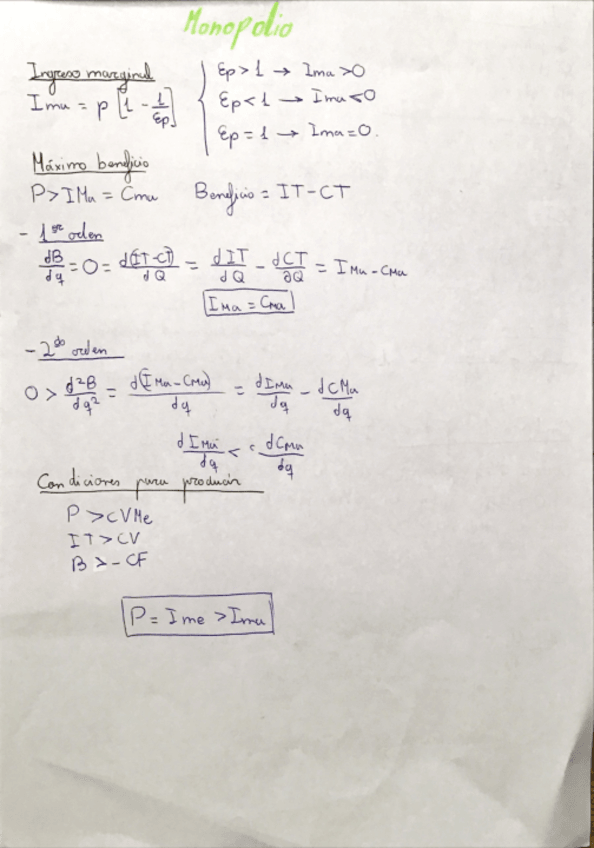 Monopolio
Ingreso marginal
Ima = p [1 - 1/Ep]
Ep > 1 → Ima > 0
Ep < 1 → Ima < 0
Ep = 1 → Ima = 0.
Máximo beneficio
P > IMa = Cma Beneficio = IT - CT
- 1er orden
dB/dq = 0 = d(IT-CT)/dQ = dIT/dQ - dCT/∂Q = IMa - CMa
IMa = CMa
- 2do orden
0 > d²B/dq² = d(IMa - CMa)/dq = dIMa/dq - dCMa/dq
dIMa/dq < dCMa/dq
Condiciones para producir
P > CVMe
IT > CV
B > - CF
P = Ime > Ima